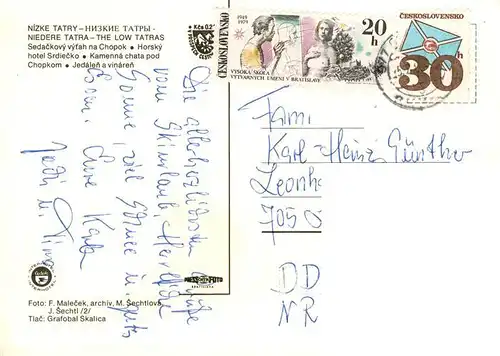 NÍZKE TATRY – НИЗКИЕ ТАТРЫ –
NIEDERE TATRA – THE LOW TATRAS
Sedačkový výťah na Chopok • Horský
hotel Srdiečko • Kamenná chata pod
Chopkom • Jedáleň a vináreň
Kčs 0,2
ČESKOSLOVENSKO
1949
1979
20h
VYSOKÁ ŠKOLA
VÝTVARNÝCH UMENÍ V BRATISLAVE
30h
ČESKOSLOVENSKO
Die allerherzlichsten Grüße
vom Skiurlaub. Herrliche
Sonne, viel
Eure
Fam.
Karl-Heinz Günther
Leonh
7050
DD
NR
PRESSFOTO
BRATISLAVA
Foto: F. Maleček, archiv, M. Šechtlová,
J. Šechtl /2/
Tlač: Grafobal Skalica